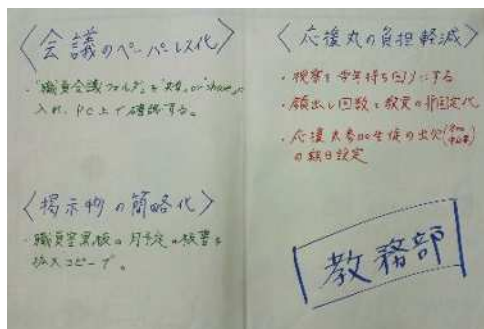 〈会議のペーパーレス化〉
・"職員会議フォルダ"を"共有"or"share"に
入れ、PC上で確認する。
〈掲示物の簡略化〉
・職員室黒板の月予定の板書を
拡大コピーで。
〈応援丸の負担軽減〉
・視察を学年持ち回りにする
・顔出し回数と教室の非固定化
・応援丸参加生徒の出欠
の期日設定
教務部